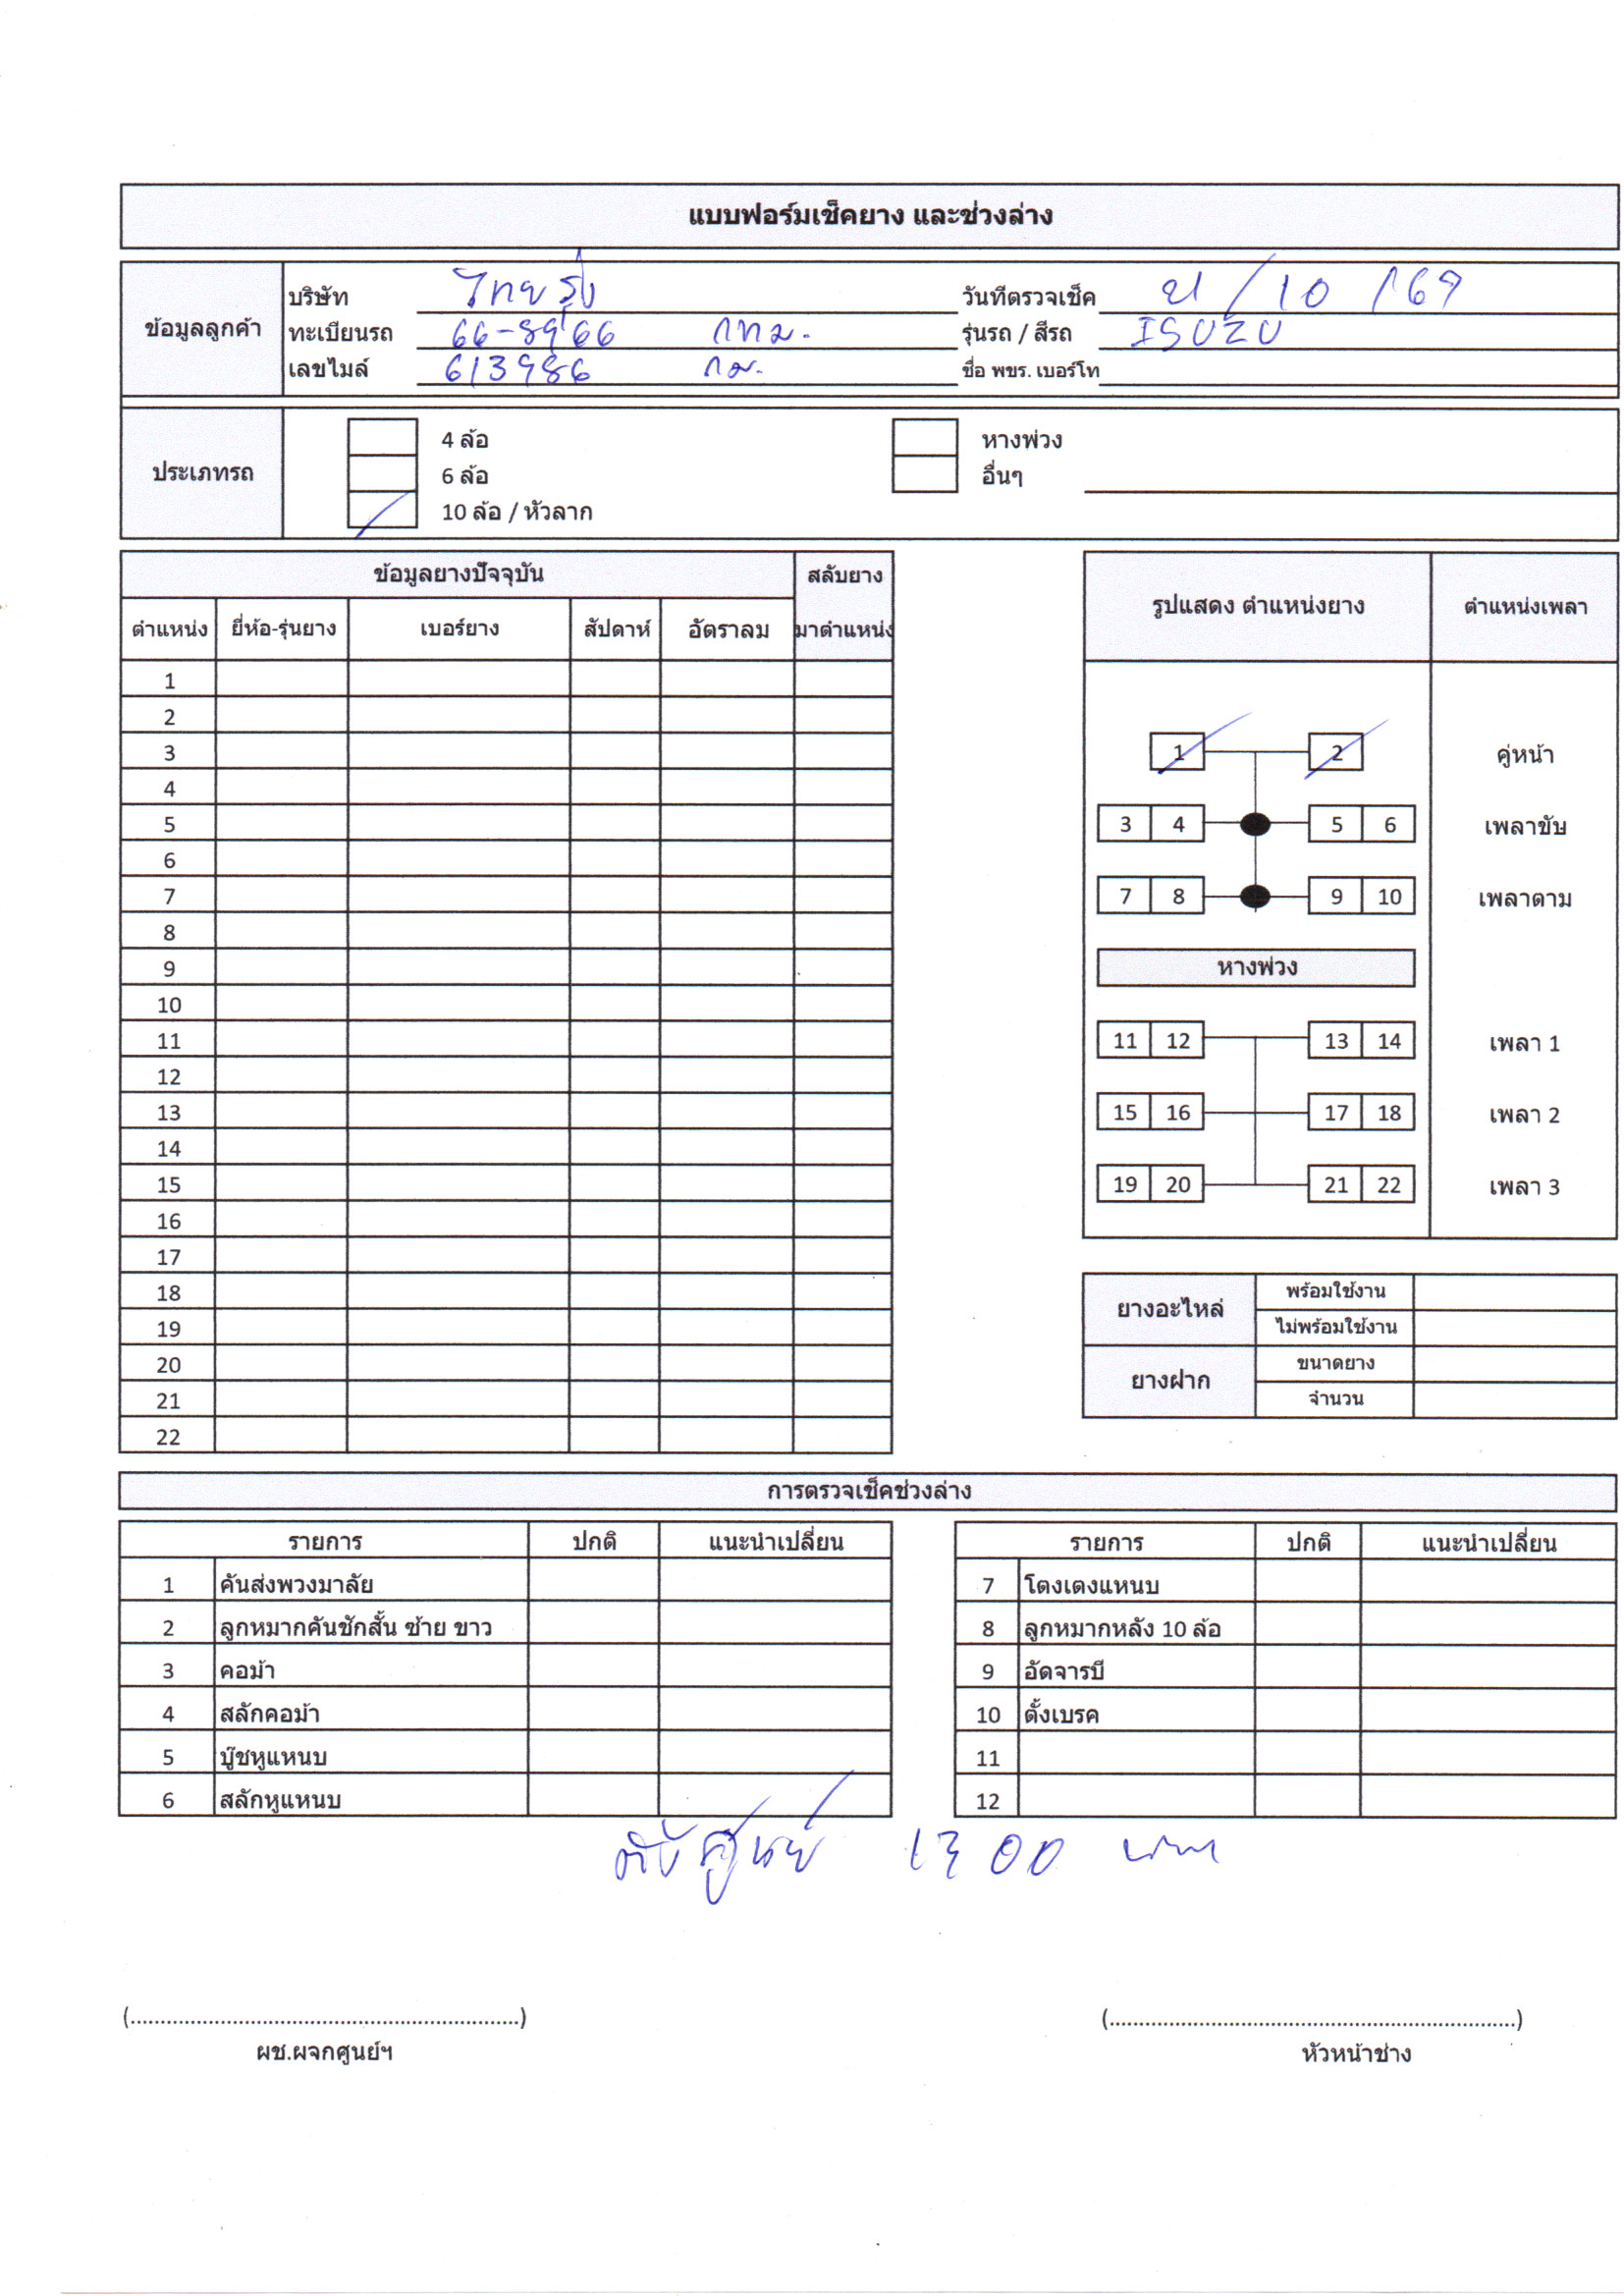 แบบฟอร์มเช็คยาง และช่วงล่าง
ข้อมูลลูกค้า
บริษัท ไทยรุ่ง วันที่ตรวจเช็ค 21/10/69
ทะเบียนรถ 66-8966 กทม. รุ่นรถ / สีรถ ISUZU
เลขไมล์ 613986 กม. ชื่อ พขร. เบอร์โท
ประเภทรถ
4 ล้อ หางพ่วง
6 ล้อ อื่นๆ
10 ล้อ / หัวลาก
ข้อมูลยางปัจจุบัน สลับยาง
ตำแหน่ง ยี่ห้อ-รุ่นยาง เบอร์ยาง สัปดาห์ อัตราลม มาตำแหน่ง
1
2
3
4
5
6
7
8
9
10
11
12
13
14
15
16
17
18
19
20
21
22
รูปแสดง ตำแหน่งยาง ตำแหน่งเพลา
1 2 คู่หน้า
3 4 5 6 เพลาขับ
7 8 9 10 เพลาตาม
หางพ่วง
11 12 13 14 เพลา 1
15 16 17 18 เพลา 2
19 20 21 22 เพลา 3
ยางอะไหล่ พร้อมใช้งาน
ไม่พร้อมใช้งาน
ยางฝาก ขนาดยาง
จำนวน
การตรวจเช็คช่วงล่าง
รายการ ปกติ แนะนำเปลี่ยน
1 คันส่งพวงมาลัย
2 ลูกหมากคันชักสั้น ซ้าย ขาว
3 คอม้า
4 สลักคอม้า
5 บู๊ชหูแหนบ
6 สลักหูแหนบ
รายการ ปกติ แนะนำเปลี่ยน
7 โตงเตงแหนบ
8 ลูกหมากหลัง 10 ล้อ
9 อัดจารบี
10 ตั้งเบรค
11
12
ตั้งศูนย์ 1300 บาท
(..................................................................)
ผช.ผจกศูนย์ฯ
(.....................................................................)
หัวหน้าช่าง